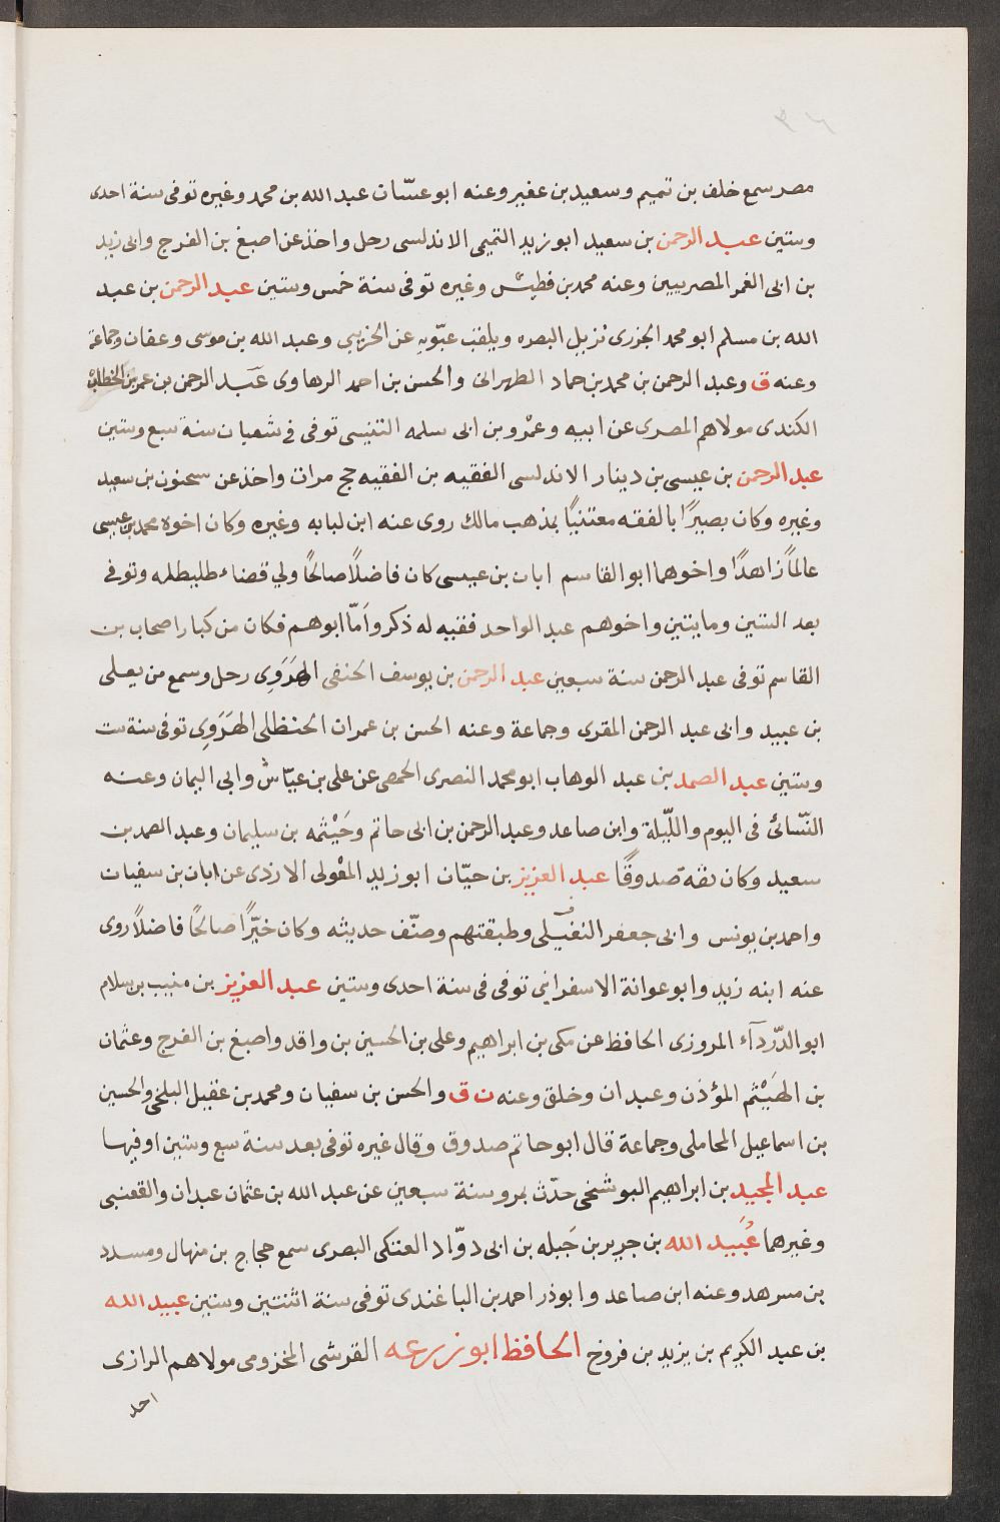 مصر سمع خلف بن تميم وسعيد بن عفير وعنه ابو عسّان عبد الله بن محمد وغيره توفى سنة احدى
وستين عبد الرحمن بن سعيد ابو زيد التميمى الاندلسى رحل واخذ عن اصبغ بن الفرج وابى زيد
بن ابى الغمر المصريين وعنه محمد بن فطيس وغيره توفى سنة خمس وستين عبد الرحمن بن عبد
الله بن مسلم ابو محمد الجزرى نزيل البصره ويلقب عبّويه عن الخريبى وعبد الله بن موسى وعفان وجماعة
وعنه ق وعبد الرحمن بن محمد بن حماد الطهرانى والحسن بن احمد الرهاوى عبد الرحمن بن عمر بن الخطاب
الكندى مولاهم المصرى عن ابيه وعمْرو بن ابى سلمه التنيسى توفى فى شعبان سنة سبع وستين
عبد الرحمن بن عيسى بن دينار الاندلسى الفقيه بن الفقيه حج مرات واخذ عن سحنون بن سعيد
وغيره وكان بصيرًا بالفقه معتنيًا بمذهب مالك روى عنه ابن لبابه وغيره وكان اخوه محمد بن عيسى
عالمًا زاهدًا واخوهما ابو القاسم ابان بن عيسى كان فاضلًا صالحًا ولي قضاء طليطله وتوفى
بعد الستين ومايتين واخوهم عبد الواحد فقيه له ذكر وامّا ابوهم فكان من كبار اصحاب بن
القاسم توفى عبد الرحمن سنة سبعين عبد الرحمن بن يوسف الحنفى الهَرَوِى رحل وسمع من يعلى
بن عبيد وابى عبد الرحمن المقرى وجماعة وعنه الحسن بن عمران الحنظلى الهَرَوِى توفى سنة ست
وستين عبد الصمد بن عبد الوهاب ابو محمد النصرى الحمصى عن على بن عيّاش وابى اليمان وعنه
النّسائى فى اليوم واللّيلة وابن صاعد وعبد الرحمن بن ابى حاتم وخَيْثمه بن سليمان وعبد الصمد بن
سعيد وكان ثقه صدوقًا عبد العزيز بن حيّان ابو زيد المعْولى الازدى عن ابان بن سفيان
واحمد بن يونس وابى جعفر النفيلى وطبقتهم وصنّف حديثه وكان خيّرًا صالحًا فاضلًا روى
عنه ابنه زيد وابو عوانة الاسفراينى توفى فى سنة احدى وستين عبد العزيز بن منيب بن سلام
ابو الدّردآء المروزى الحافظ عن مكى بن ابراهيم وعلى بن الحسين بن واقد واصبغ بن الفرج وعثمان
بن الهَيْثم المؤذن وعبدان وخلق وعنه ن ق والحسن بن سفيان ومحمد بن عقيل البلخى والحسين
بن اسماعيل المحاملى وجماعة قال ابو حاتم صدوق وقال غيره توفى بعد سنة سبع وستين او فيها
عبد المجيد بن ابراهيم البوشنخى حدّث بمرو سنة سبعين عن عبد الله بن عثمان عبدان والقعنبى
وغيرهما عُبَيد الله بن جرير بن جَبله بن ابى دوّاد العتكى البصرى سمع حجاج بن منهال ومسدد
بن مسرهد وعنه ابن صاعد وابوذر احمد بن الباغندى توفى سنة اثنتين وستين عبيد الله
بن عبد الكريم بن يزيد بن فروخ الحافظ ابو زرعه القرشى المخزومى مولاهم الرازى
احد